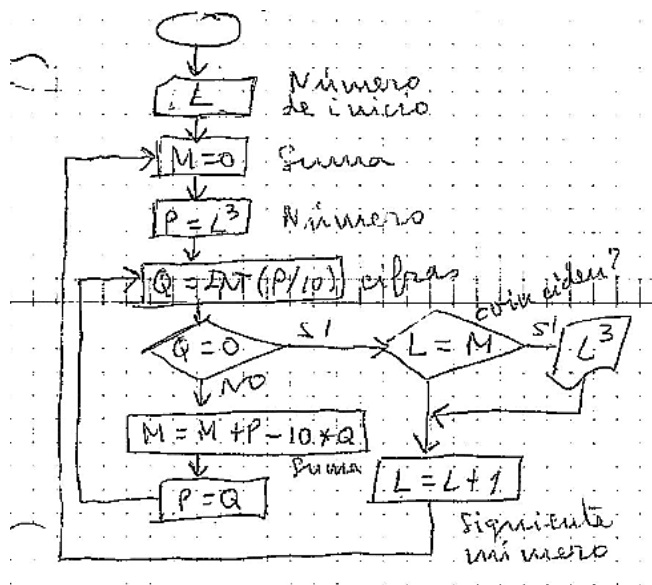 L
Número
de inicio
M=0
Suma
P=L³
Número
Q=ENT(P/10)
cifras
coinciden?
Q=0
SI
L=M
SI
L³
NO
M=M+P-10*Q
Suma
P=Q
L=L+1
Siguiente
número